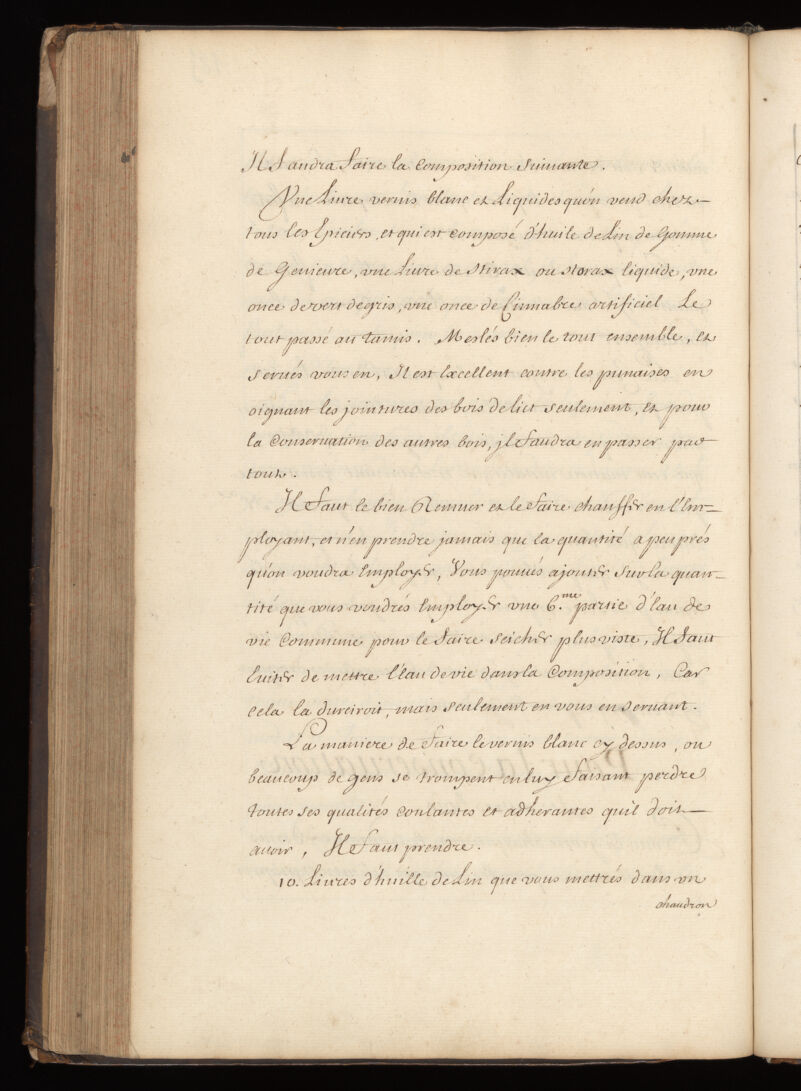 Il faudra faire la Composition Suiuante.
Vne Liure vernis blanc et Liquides qu'on vend chez
tous les Epiciers, et qui est composé d'huile de Lin de Gomme
de Genieure, vne Liure de Stirax ou storax liquide, vne
once de vert de gris, vne once de Cinnabre artificiel Le
tout passé au tamis. Meslés bien le tout ensemble, et
serués vous en, Il est Excellent contre les punaises en
oignant les jointures des bois de lict seulement, Et pour
la Conseruation des autres bois, jl faudra en passer par
tout.
Il faut le bien Remuer et le faire chauffer en l'Em=
ployant, et n'en prendre jamais que la quantité a peu prés
qu'on voudra Employer, Vous pouués ajouter Sur la quan=
tité que vous voudrés Employer vne 6.me partie d'Eau de
vie Commune pour le faire seicher plus viste, Il faut
Euiter de mettre l'Eau de vie dans la Composition, Car
Cela la durciroit, mais seulement en vous en Seruant.
La maniere de faire le vernis blanc cy dessus, ou
beaucoup de gens se trompent en luy faisant perdre
toutes ses qualités Coulantes et adherantes quil doit
auoir, Il faut prendre.
10. Liures d'huille de Lin que vous mettrés dans vn
chaudron